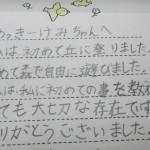 っきーけみちゃんへ
は初めて丘に登りました。
めて森で自由に遊びました。
は私に初めての事を教え
ても大切な存在です
りがとうございました